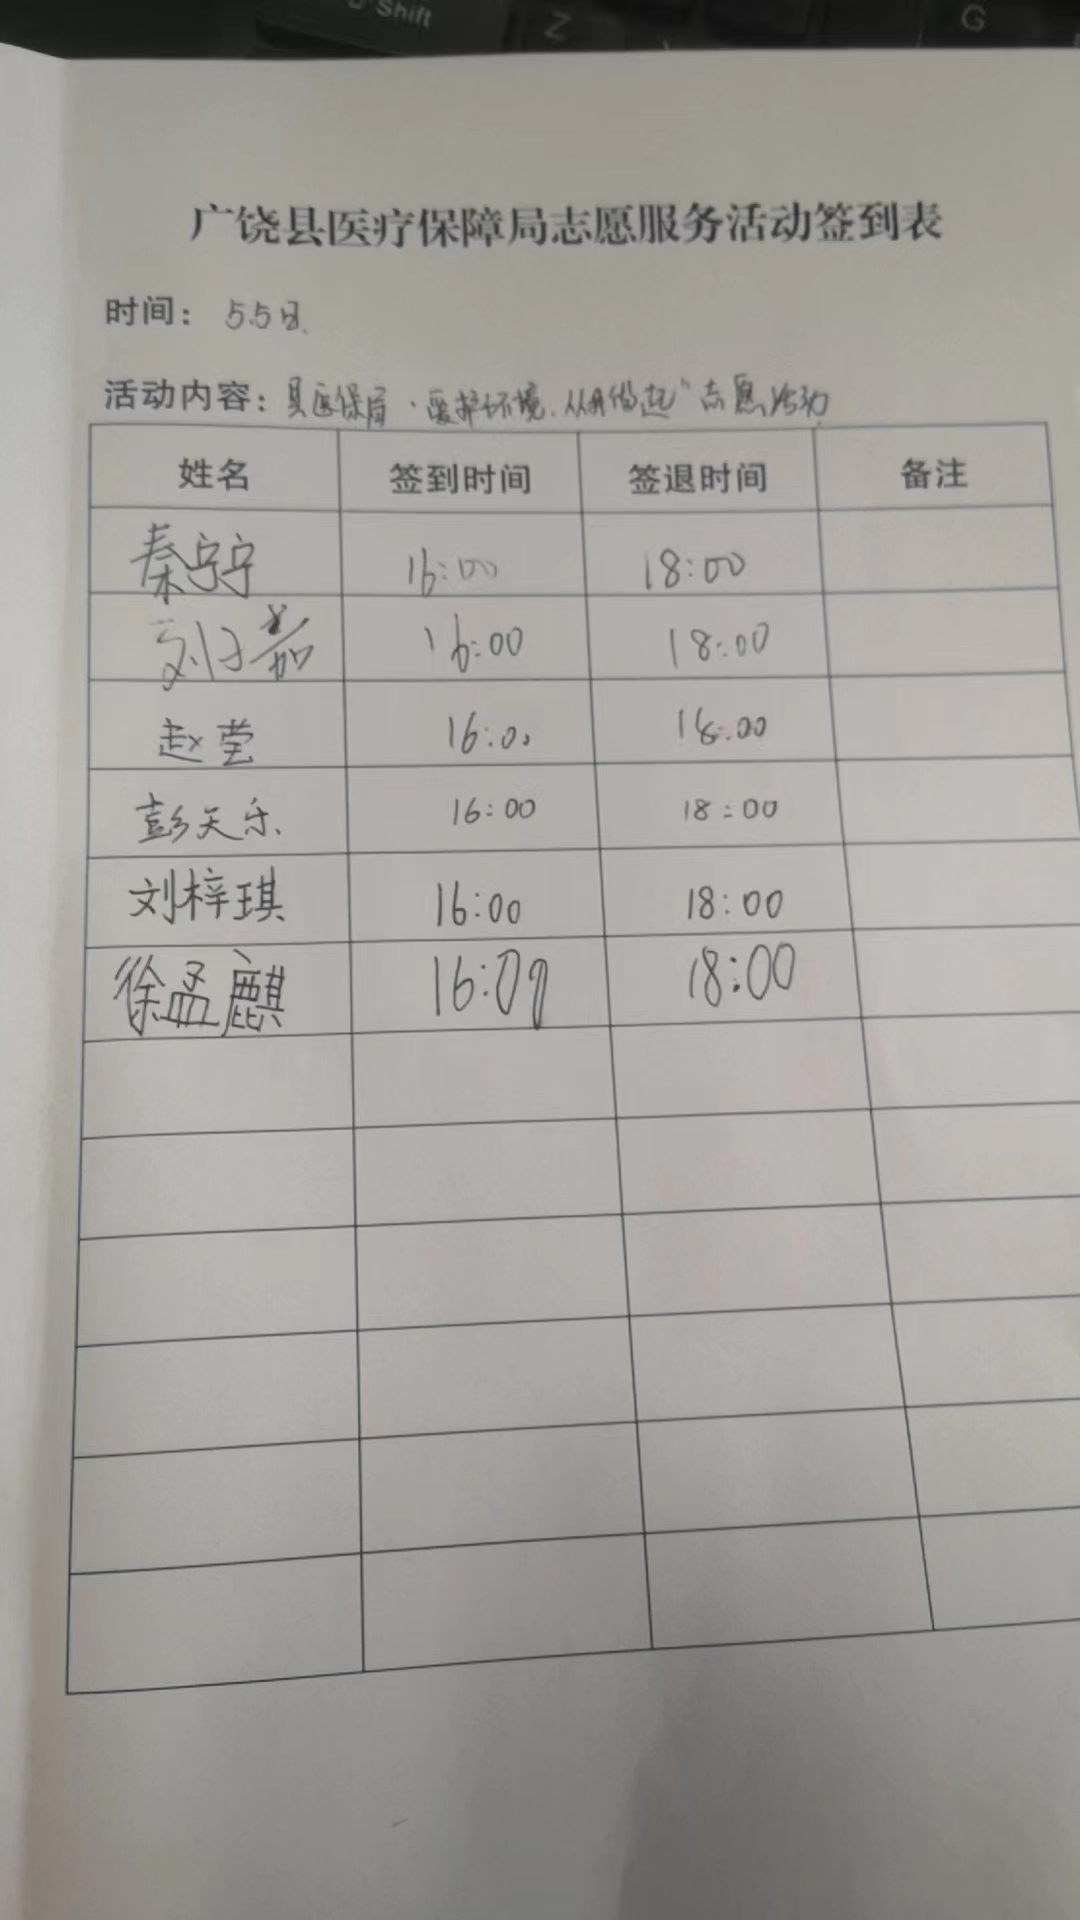 Shift
Z
G
广饶县医疗保障局志愿服务活动签到表
时间: 5.5日.
活动内容: 县医保局"爱护环境.从我做起"志愿活动
姓名 签到时间 签退时间 备注
秦宁宁 16:00 18:00
刘子嘉 16:00 18:00
赵莹 16:00 18:00
彭天乐 16:00 18:00
刘梓琪 16:00 18:00
徐孟麒 16:00 18:00